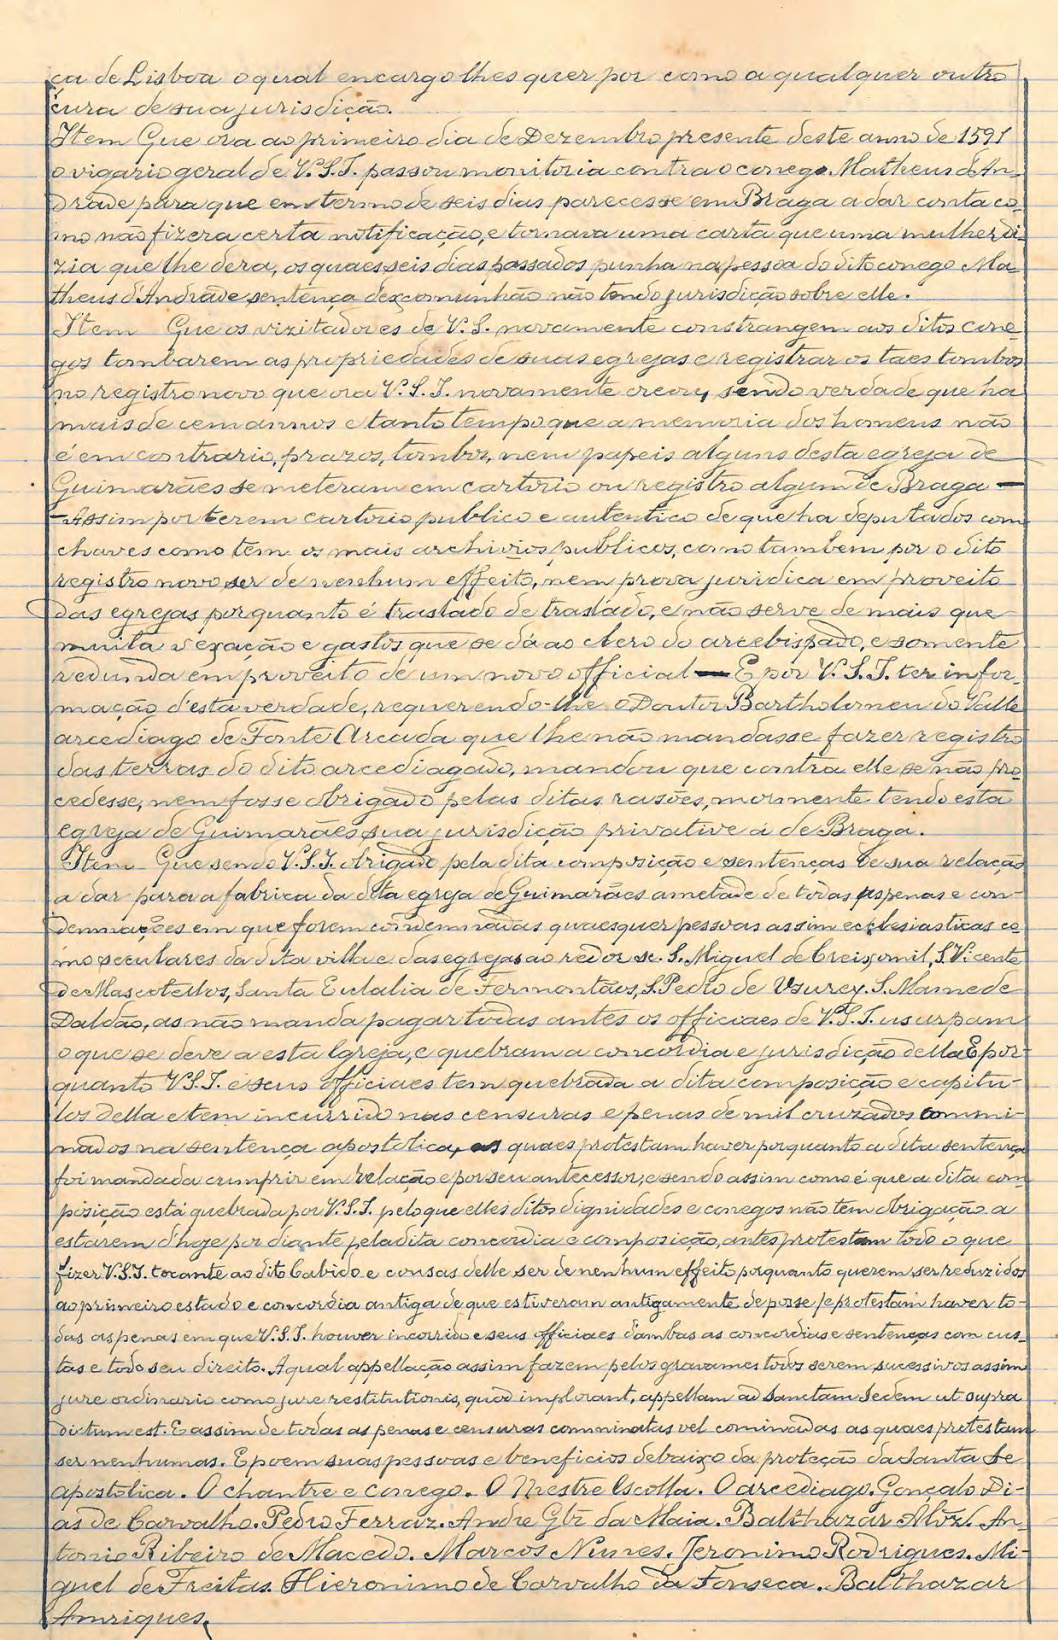 ça de Lisboa o qual encargo lhes quer por como a qualquer outro
cura de sua jurisdição.
Item Que ora ao primeiro dia de Dezembro presente deste anno de 1591
o vigario geral de V.S.I. passou monitoria contra o conego Matheus d'An-
drade para que em termo de seis dias parecesse em Braga a dar conta co-
mo não fizera certa notificação, e tornava uma carta que uma mulher di-
zia que lhe dera, os quaes seis dias passados punha na pessoa do dito conego Ma-
theus d'Andrade sentença descomunhão não tendo jurisdicão sobre elle.
Item Que os vizitadores de V.S. novamente constrangem aos ditos cone-
gos tombarem as propriedades de suas egrejas e registrar os taes tombos
no registro novo que ora V.S.I. novamente creou, sendo verdade que ha
mais de cem annos e tanto tempo que a memoria dos homeus não
é em contrario, prazos, tombos, nem papeis alguns desta egreja de
Guimarães se meteram em cartorio ou registro algum de Braga —
— Assim por terem cartorio publico e autentico de que ha deputados com
chaves como tem os mais archivios publicos, como tambem por o dito
registro novo ser de nenhum effeito, nem prova juridica em proveito
das egrejas porquanto é traslado de traslado, e não serve de mais que
muita vexação e gastos que se dá ao clero do arcebispado, e somente
redunda em proveito de um novo official — E por V.S.I. ter infor-
mação d'esta verdade, requerendo-lhe o Doutor Bartholomeu do Valle
arcediago de Fonte Arcada que lhe não mandasse fazer registro
das terras do dito arcediagado, mandou que contra elle se não pro-
cedesse, nem fosse obrigado pelas ditas rasões, mormente tendo esta
egreja de Guimarães sua jurisdição privative á de Braga.
Item Que sendo V.S.I. obrigado pela dita composição e sentenças de sua relação
a dar para a fabrica da dita egreja de Guimarães ametade de todas as penas e con-
demnações em que forem condemnadas quaesquer pessoas assim ecclesiasticas co-
mo seculares da dita villa e das egrejas ao redor sc. S. Miguel de Creixomil, S. Vicente
de Mascotellos, Santa Eulalia de Fermontães, S. Pedro de Usurey. S. Mamede
Daldão, as não manda pagar todas antes os officiaes de V.S.I. usurpam
o que se deve a esta Igreja, e quebram a concordia e jurisdição della E por-
quanto V.S.I. e seus officiaes tem quebrada a dita composição e capitu-
los della e tem incurrido nas censuras e penas de mil cruzados commi-
nados na sentença apostolica, as quaes protestam haver porquanto a dita sentença
foi mandada cumprir em relação e por seu antecessor, e sendo assim como é que a dita com-
posição está quebrada por V.S.I. pelo que elles ditos dignidades e conegos não tem obrigação a
estarem d'hoje por diante pela dita concordia e composição, antes protestam todo o que
fizer V.S.I. tocante ao dito Cabido e cousas delle ser de nenhum effeito porquanto querem ser reduzidos
ao primeiro estado e concordia antiga de que estiveram antigamente de posse, e protestam haver to-
das as penas em que V.S.I. houver incorrido e seus officiaes d'ambas as concordias e sentenças com cus-
tas e todo seu direito. A qual appellação assim fazem pelos gravames todos serem sucessivos assim
jure ordinario como jure restitutionis, quod implorant, appellam ad Sanctam Sedem ut supra
dictum est. E assim de todas as penas e censuras comminatas vel cominadas as quaes protestam
ser nenhumas. E poem suas pessoas e beneficios debaixo da proteção da Santa Se
apostolica. O chantre e conego. O Mestre Escolla. O arcediago. Gonçalo Di-
as de Carvalho. Pedro Ferraz. Andre Glz da Maia. Balthazar Alvz. An-
tonio Ribeiro de Macedo. Marcos Nunes. Jeronimo Rodrigues. Mi-
guel de Freitas. Hieronimo de Carvalho da Fonseca. Balthazar
Amriques.